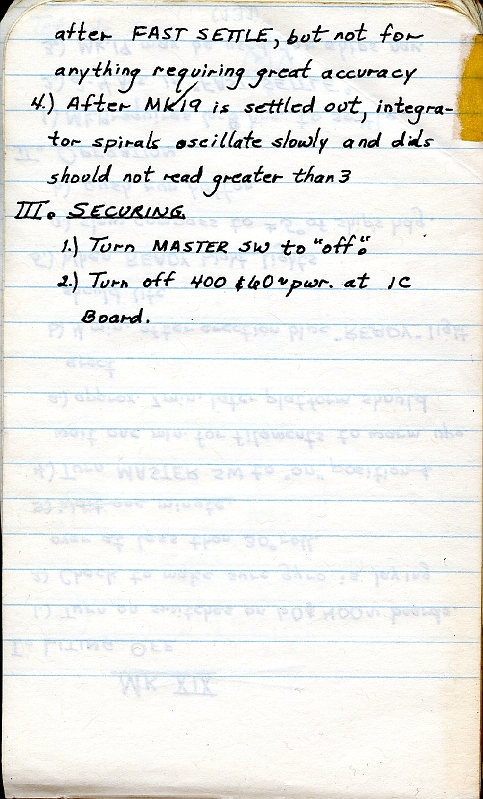 after FAST SETTLE, but not for
anything requiring great accuracy
4.) After MK19 is settled out, integra-
tor spirals oscillate slowly and dials
should not read greater than 3
III. SECURING.
1.) Turn MASTER SW to "off".
2.) Turn off 400 & 60~pwr. at IC
Board.